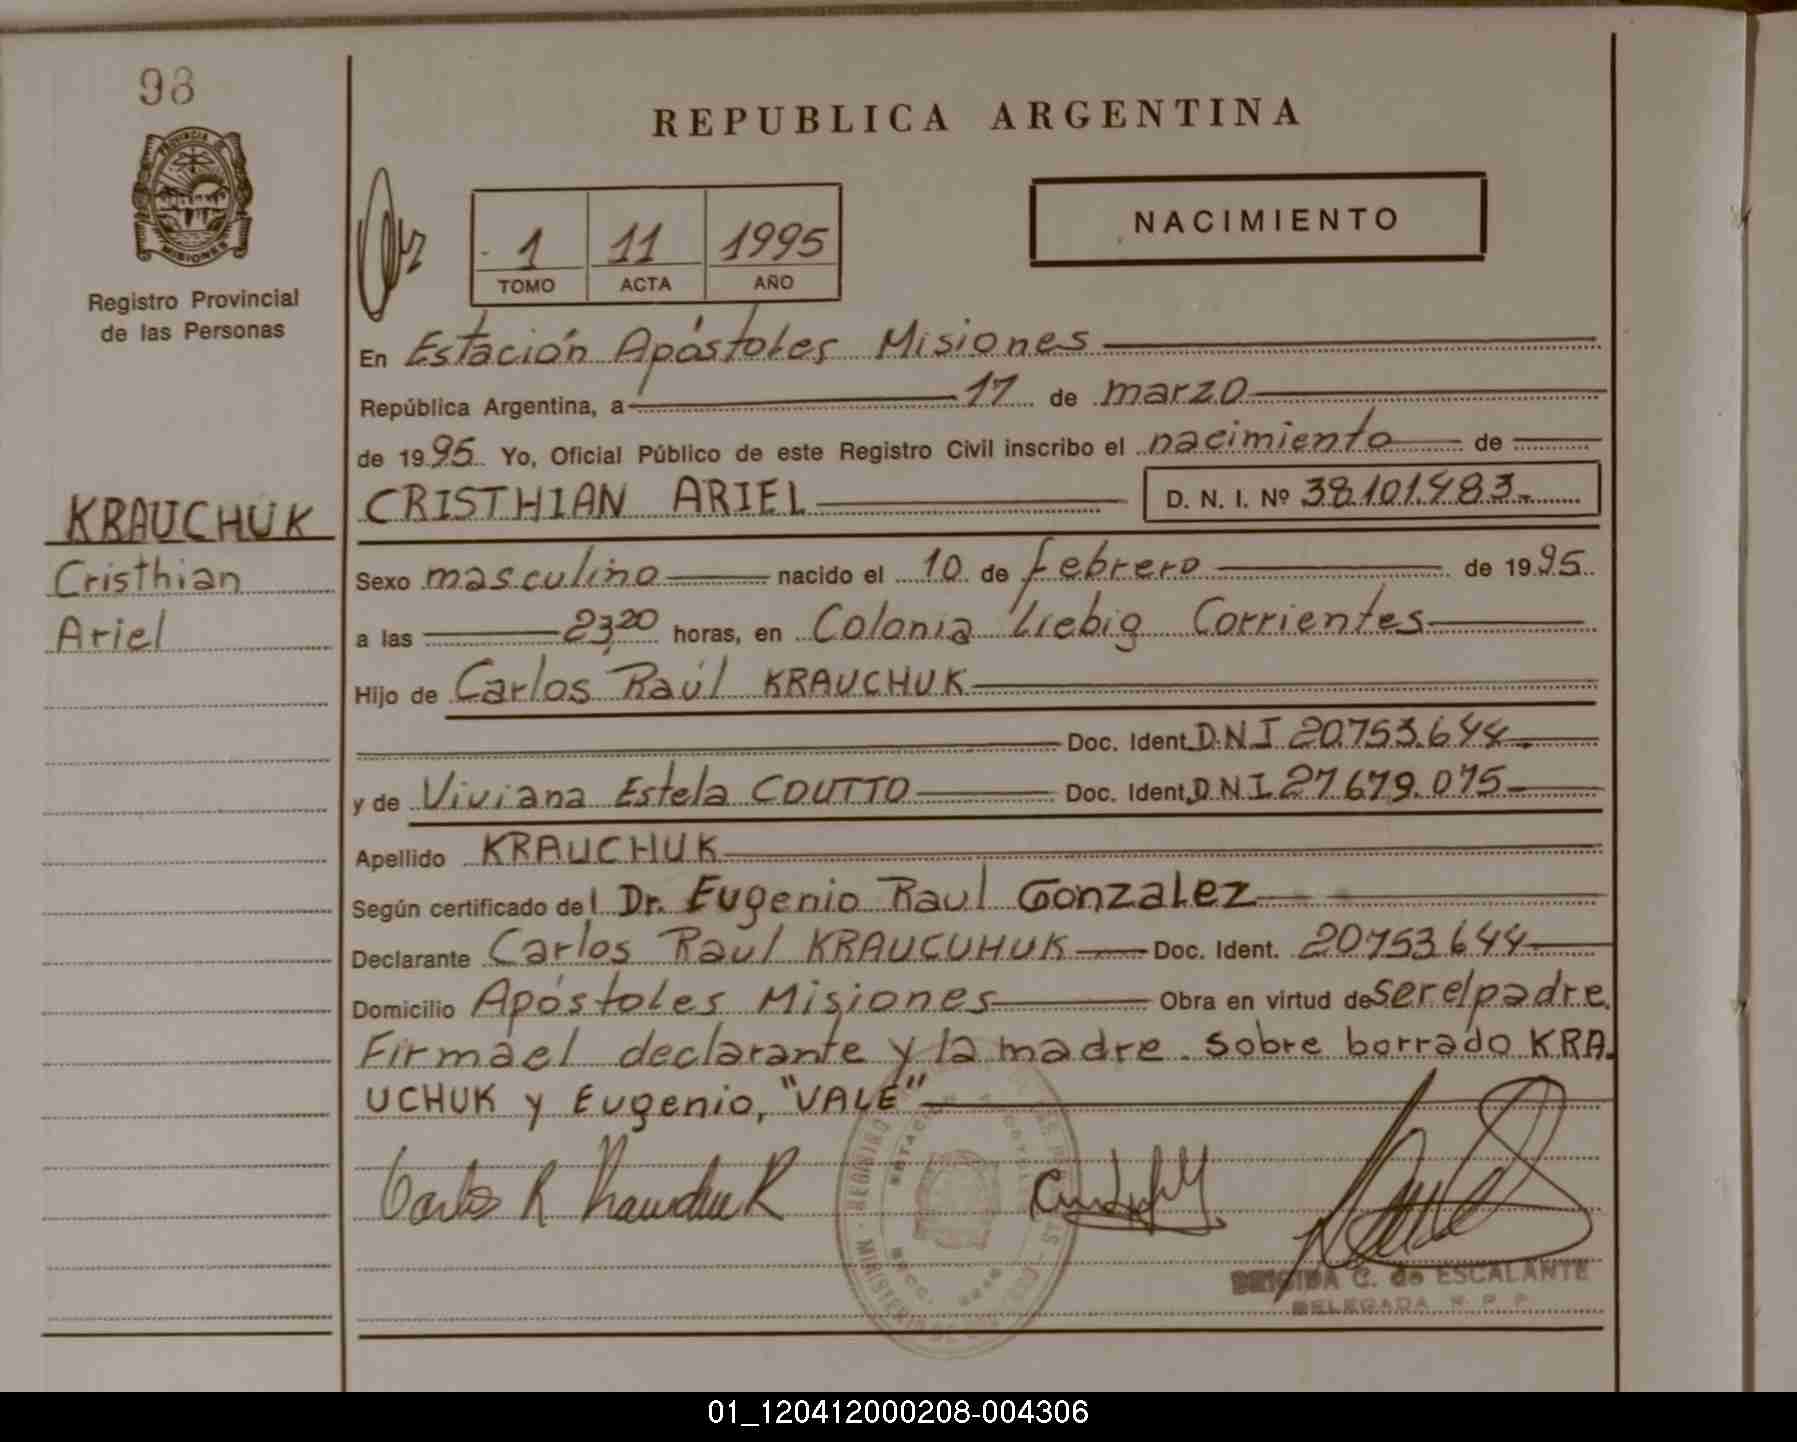 98
PROVINCIA DE
MISIONES
Registro Provincial
de las Personas
REPUBLICA ARGENTINA
1 11 1995
TOMO ACTA AÑO
NACIMIENTO
En Estación Apóstoles Misiones
República Argentina, a 17 de marzo
de 1995 Yo, Oficial Público de este Registro Civil inscribo el nacimiento de
KRAUCHUK
Cristhian
Ariel
CRISTHIAN ARIEL D. N. I. Nº 38.101.483.
Sexo masculino nacido el 10 de febrero de 1995
a las 23,20 horas, en Colonia Liebig Corrientes
Hijo de Carlos Raúl KRAUCHUK
Doc. Ident. D.N.I 20.753.644.
y de Viviana Estela COUTTO Doc. Ident. D.N.I. 27.679.075
Apellido KRAUCHUK
Según certificado del Dr. Eugenio Raul Gonzalez
Declarante Carlos Raul KRAUCUHUK Doc. Ident. 20753644
Domicilio Apóstoles Misiones Obra en virtud de ser el padre.
Firma el declarante y la madre. sobre borrado KRA
UCHUK y Eugenio, "VALE"
Carlos R Krauchuk
BRIGIDA C. de ESCALANTE
DELEGADA R. P. P.
01_120412000208-004306